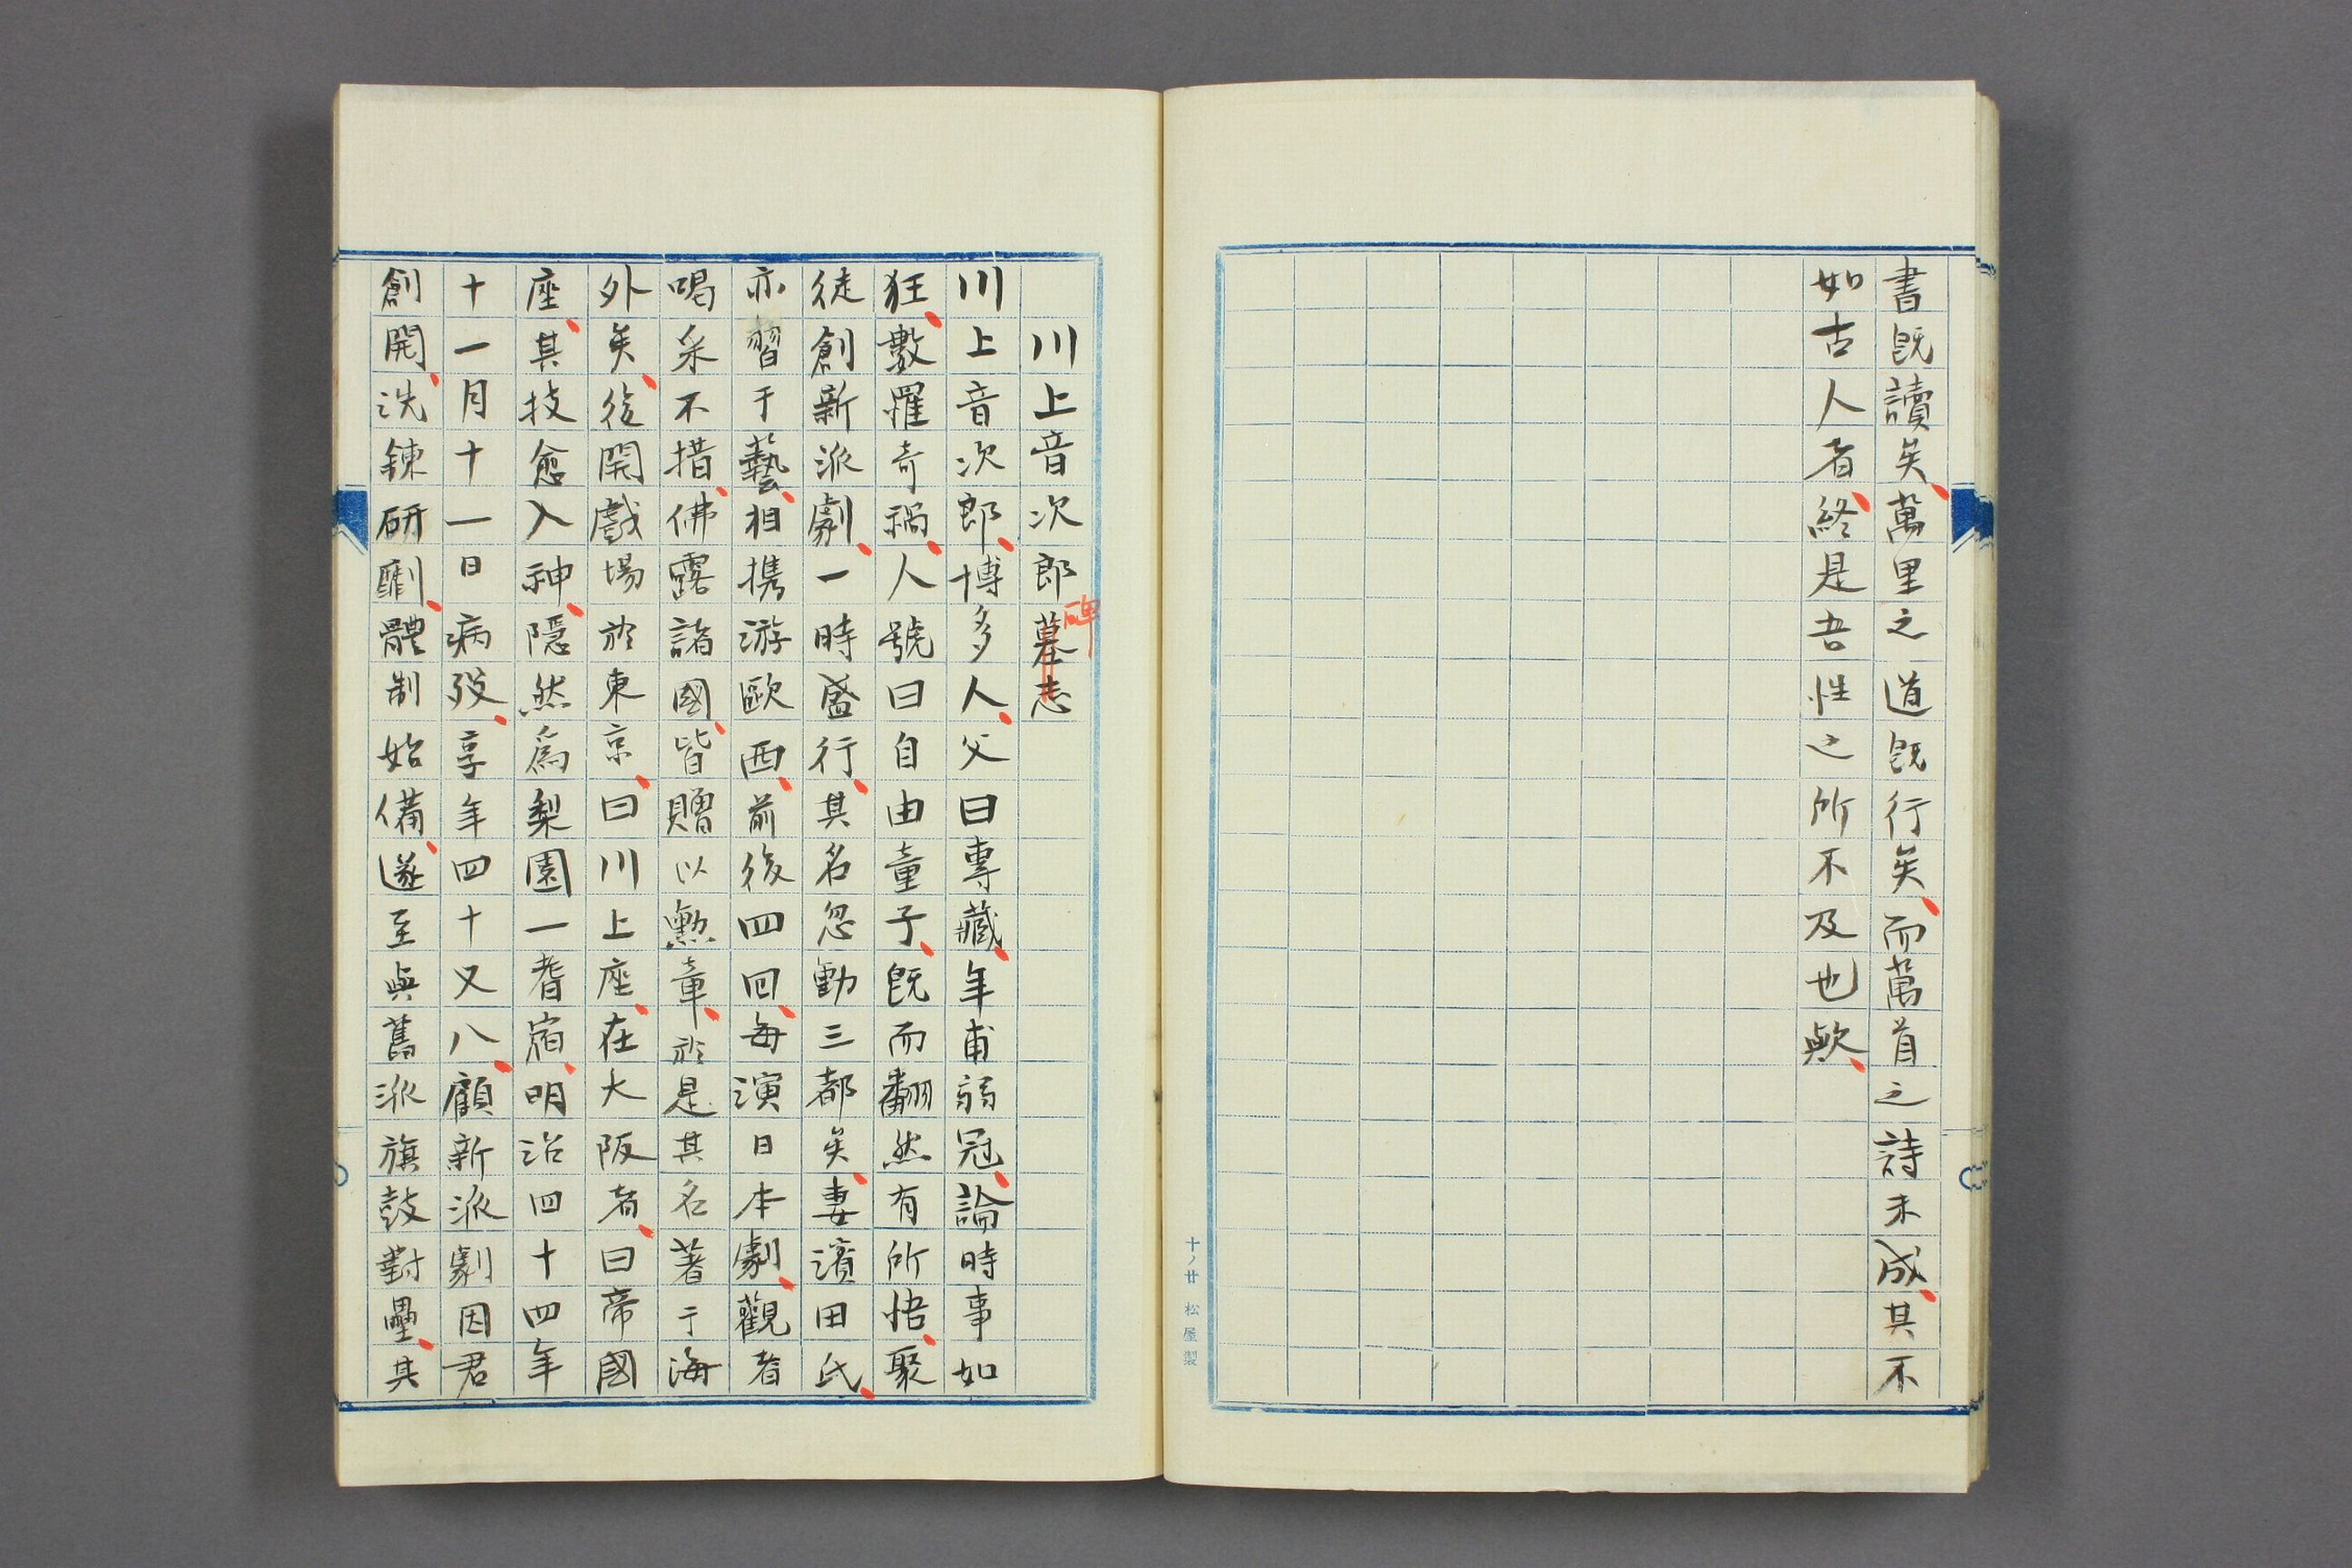 書既讀矣、萬里之道既行矣、而萬首之詩未成、其不
如古人者、終是吾性之所不及也歟、
十ノ廿 松屋製
川上音次郎墓志
碑
川上音次郎、博多人、父曰專藏、年甫弱冠、論時事如
狂、數罹奇禍、人號曰自由童子、既而翻然有所悟、聚
徒創新派劇、一時盛行、其名忽動三都矣、妻濱田氏、
亦習于藝、相携游歐西、前後四回、每演日本劇、觀者
喝采不措、佛露諸國、皆贈以勲章、於是其名著于海
外矣、後開戲場於東京、曰川上座、在大阪者、曰帝國
座、其技愈入神、隱然爲梨園一耆宿、明治四十四年
十一月十一日病歿、享年四十又八、顧新派劇因君
創開、洗鍊研劘、體制始備、遂至與舊派旗鼓對壘、其